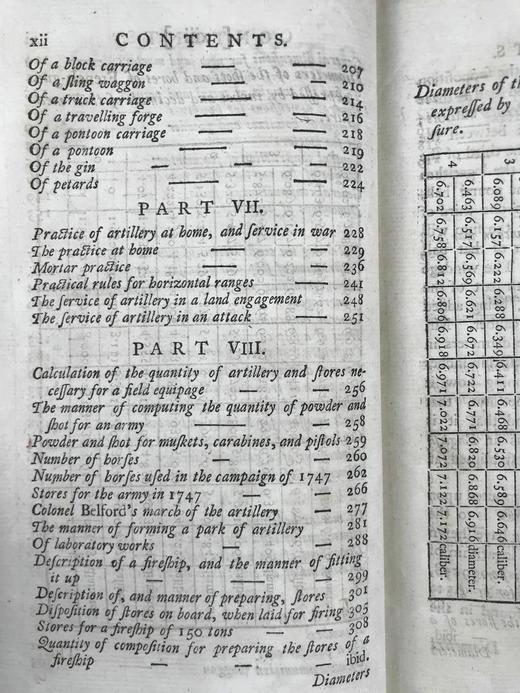 xii CONTENTS.
Of a block carriage — — 207
Of a ſling waggon — — 210
Of a truck carriage — — 214
Of a travelling forge — — 216
Of a pontoon carriage — — 218
Of a pontoon — — 219
Of the gin — — — 222
Of petards — — 224
PART VII.
Practice of artillery at home, and ſervice in war 228
The practice at home — — 229
Mortar practice — — 236
Practical rules for horizontal ranges — 241
The ſervice of artillery in a land engagement 248
The ſervice of artillery in an attack — 251
PART VIII.
Calculation of the quantity of artillery and ſtores ne-
ceſſary for a field equipage — — 256
The manner of computing the quantity of powder and
ſhot for an army — — 258
Powder and ſhot for muſkets, carabines, and piſtols 259
Number of horſes — — 260
Number of horſes uſed in the campaign of 1747 262
Stores for the army in 1747 — — 266
Colonel Belford's march of the artillery — 277
The manner of forming a park of artillery 281
Of laboratory works — — 288
Deſcription of a fireſhip, and the manner of fitting
it up — — — 299
Deſcription of, and manner of preparing, ſtores 301
Diſpoſition of ſtores on board, when laid for firing 305
Stores for a fireſhip of 150 tons — — 308
Quantity of compoſition for preparing the ſtores of a
fireſhip — — — ibid.
Diameters
Diameters of th
expreſſed by
ſure.
3
6.089 6.157 6.222 6.288 6.349 6.411 6.468 6.530 6.589 6.646 caliber.
6.463 6.517 6.569 6.621 6.672 6.722 6.771 6.820 6.868 6.916 diameter.
4
6.702 6.758 6.812 6.866 6.918 6.971 7.022 7.072 7.122 7.172 caliber.